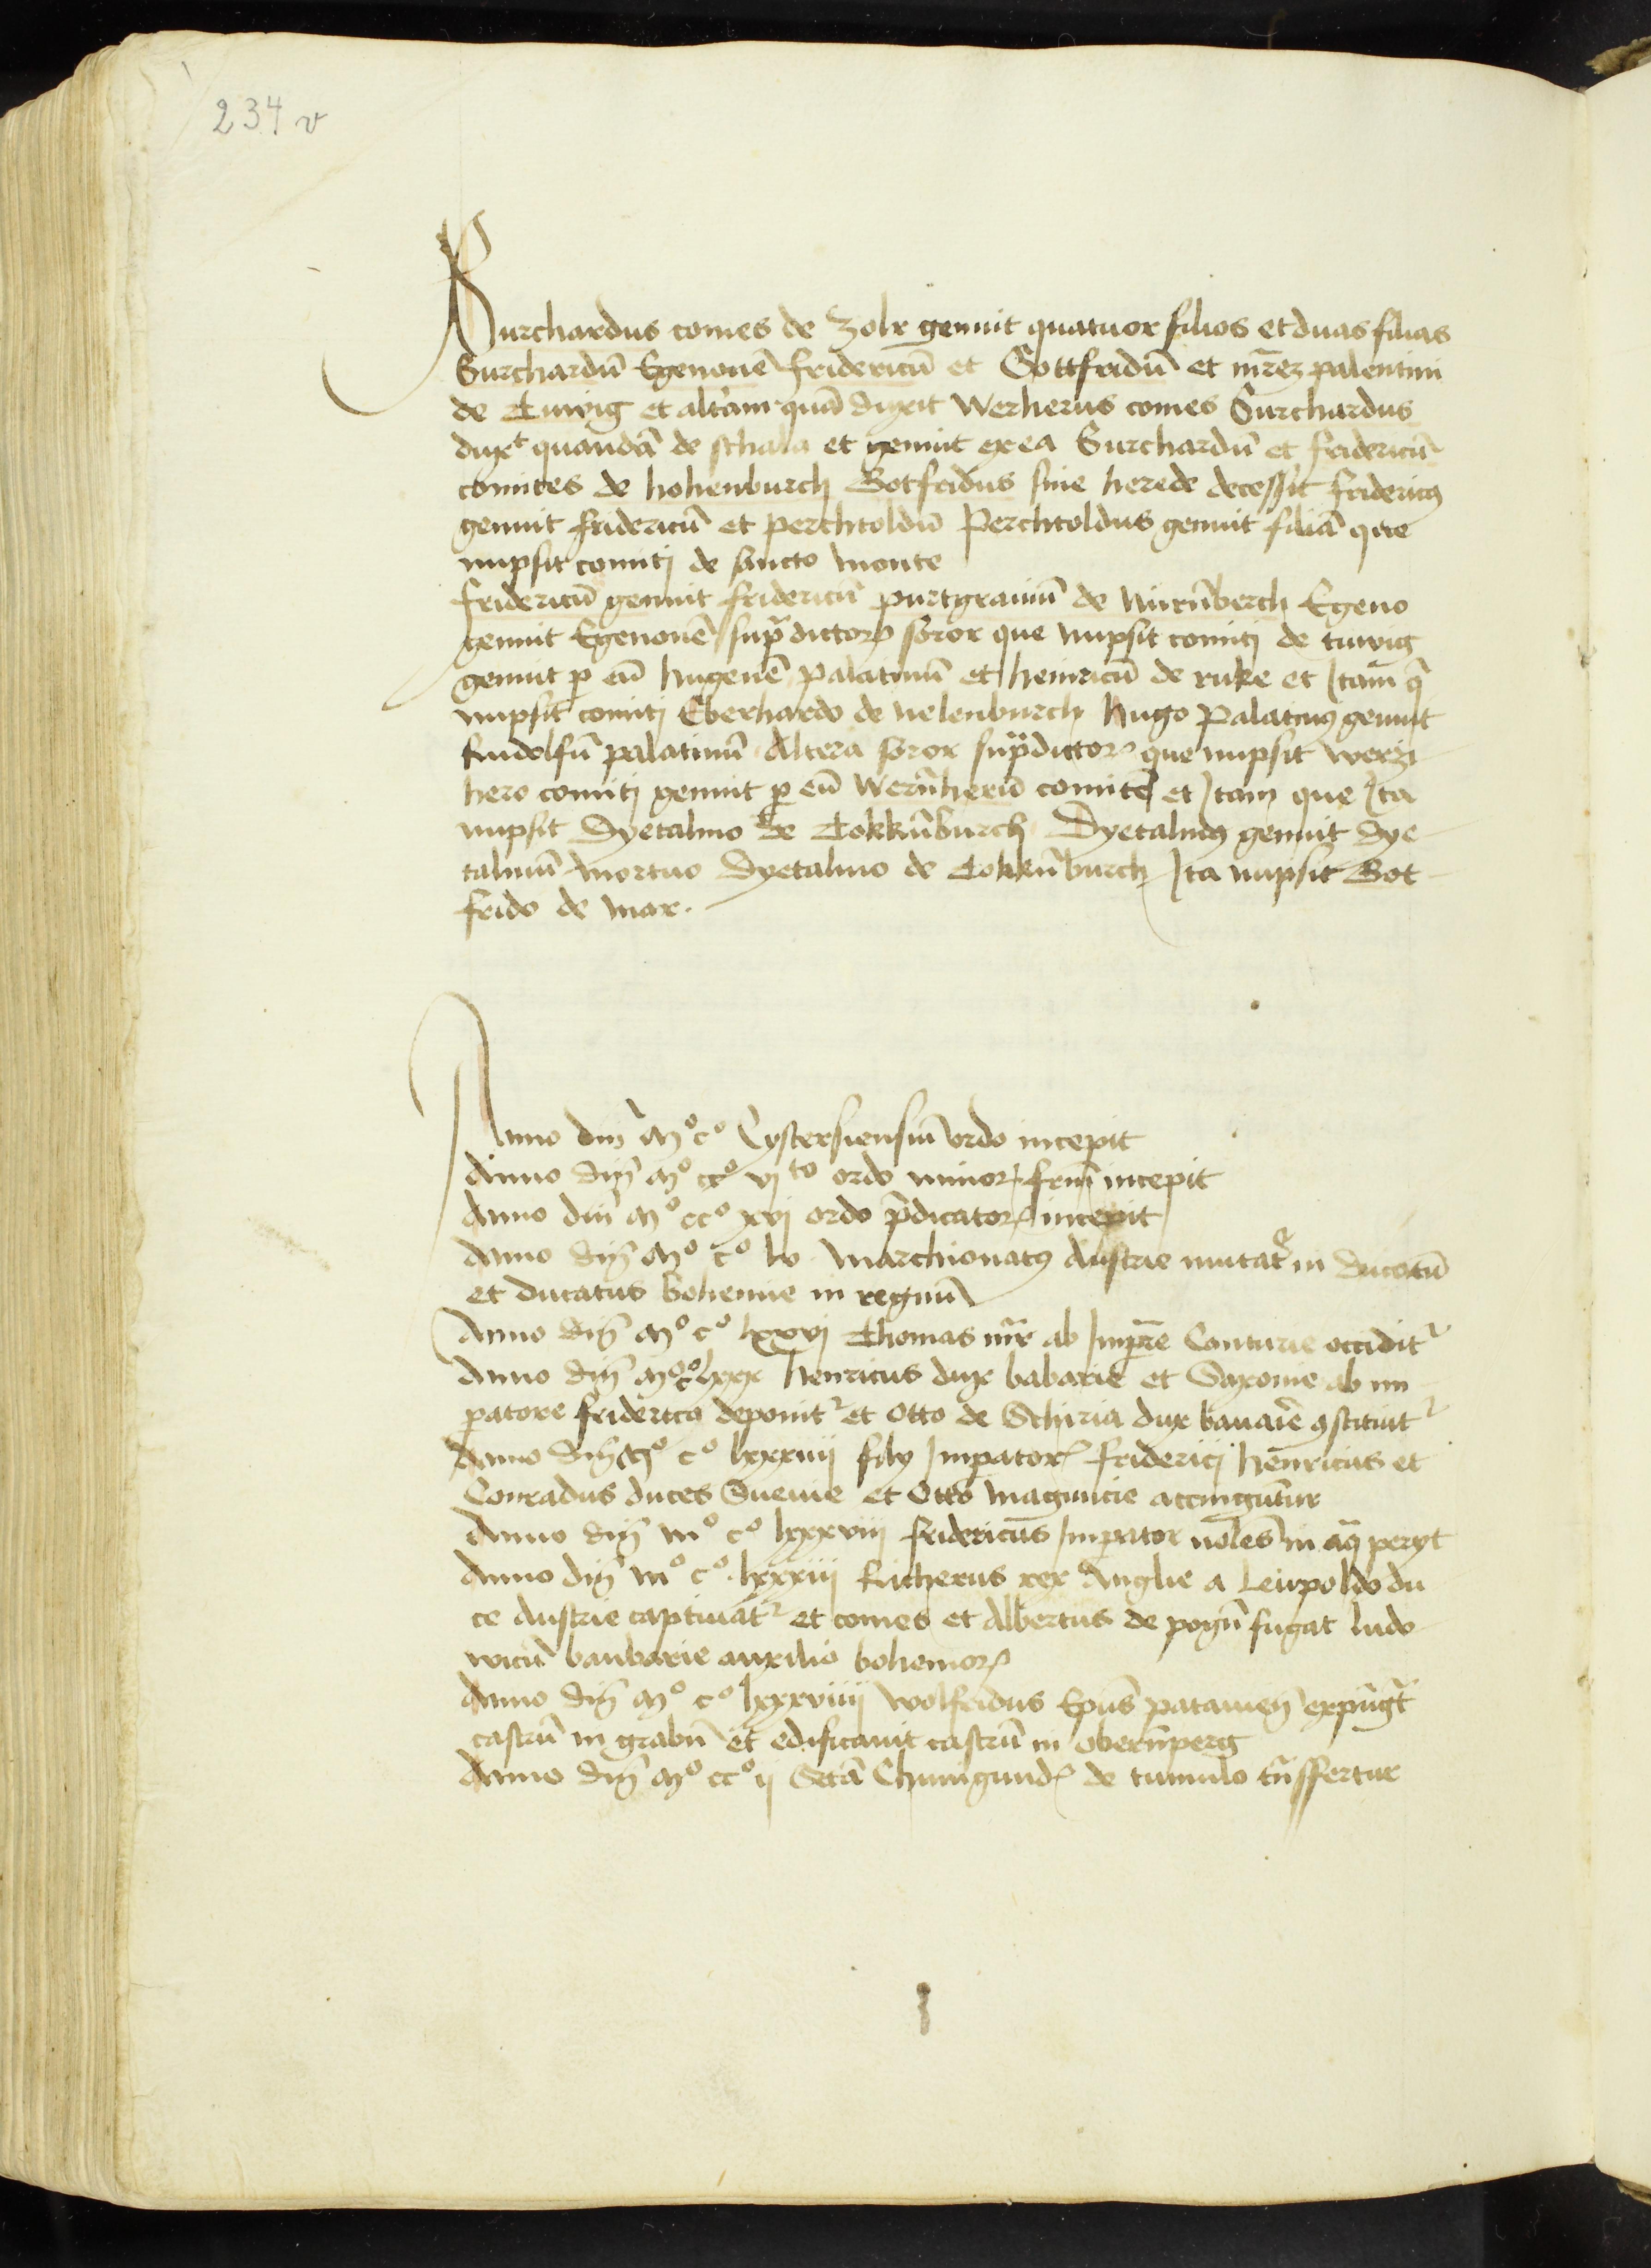 234 v
Burchardus comes de Zolr genuit quatuor filios et duas filias
Burchardū Egenonē fridericū et Gottfridū et mr̄ez palentini
de Tuwig et altam quā duxit Werherus comes Burchardus
duxt quandā de schala et genuit ex ea Burchardū et fridericū
comites de hohenburch Gotfridus sine herede decessit fridericꝰ
genuit fridericū et perchtoldū Perchtoldus genuit filiā que
nupsit comitj de sancto monte
fridericū genuit fridericū purtgrauiū de Nürn̄berch Egeno
genuit Egenonē sup̄dictoꝝ soror que nupsit comitj de tuwig
genuit ꝑ eū hugenē palatinū et heinricū de ruke et Itam q̄
nupsit comitj Eberhardo de nelenburch Hugo Palatinꝰ genuit
Rudolfū palatinū Altera soror sup̄dictoꝝ que nupsit wern
hero comitj genuit ꝑ eū Wern̄herū comitē et Itam que Ita
nupsit Dyetalmo de Tokkn̄burch Dyetalmꝰ genuit Dye
talmū mortuo Dyetalmo de Tokkn̄burch Ita nupsit Got
frido de mar.
Anno dn̄j Mº cº Cystersiensiū ordo incepit
Anno dn̄j Mº ccº vjto ordo minoꝝ frm̄ incepit
Anno dn̄j Mº ccº xvj ordo p̄dicatoꝝ incepit
Anno dn̄j Mº cº lv Marchionatꝰ Austrie mutatr in ducatū
et ducatus bohemie in regnū
Anno dn̄j Mº cº lxxvj Thomas mr̄ ab Impr̄e Canturie occiditr
Anno dn̄j Mº cº lxxx henricus dux babarie et Saxonie ab im
peratore fridericꝰ deponitr et Otto de Schiria dux bauarie ꝯstituitr
Anno dn̄j Mº cº lxxxiiij filij Imperatoꝝ friderici henricus et
Conradus duces Sueuie et Otto maguncie accingūtur
Anno dn̄j mº cº lxxxviij fridericus Imperator nolēs in aq̄ perijt
Anno dn̄j mº cº lxxxiij Richerus rex Anglie a Leupoldo du
ce Austrie captiuatr et comes et Albertus de pogn̄ fugat ludo
wicū baubarie auxilio bohemoꝝ
Anno dn̄j Mº cº lxxxviiij wolfridus Ep̄us patauien̄ expūgt
castrū in grabn̄ et edificauit castrū in obern̄perg
Anno dn̄j Mº ccº ij Sctā Chunigundꝭ de tumulo trn̄ssfertur